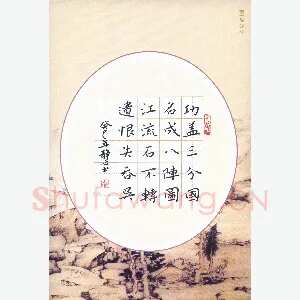 功盖三分国
名成八陣圖
江流石不轉
遺恨失吞吴
Shufawang.CN